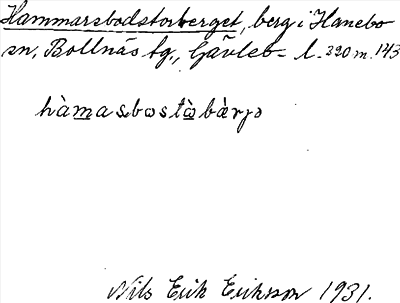 Hammarsbodstorberget, berg i Hanebo
sn, Bollnäs tg., Gävleb- l. 320 m. 143
hàmasbωstὼbàrjə
Nils Erik Eriksson 1931.